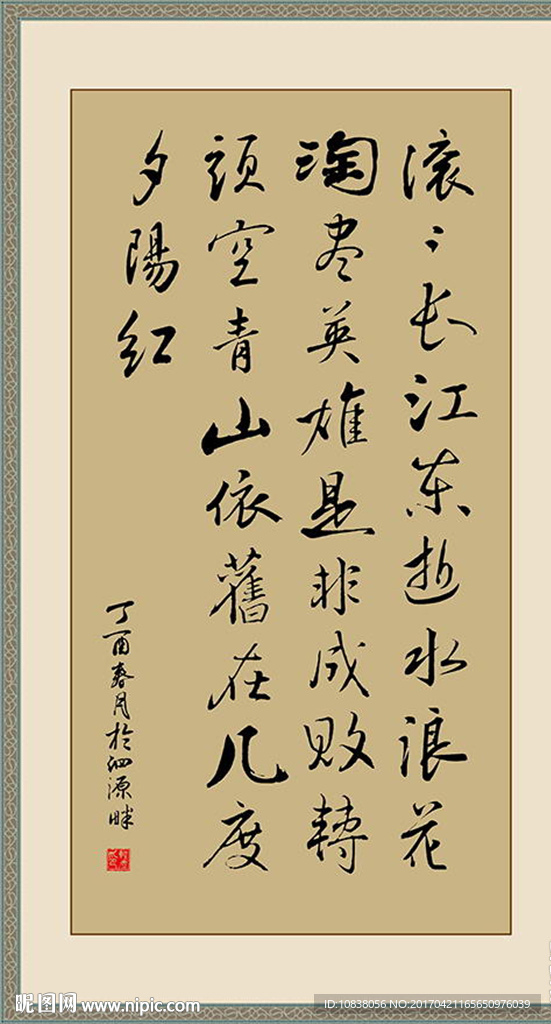 滚〻长江东逝水浪花
淘尽英雄是非成败轉
頭空青山依舊在几度
夕陽红
丁酉春月於泗源畔
昵图网 www.nipic.com
ID:10838056 NO:20170421165650976039